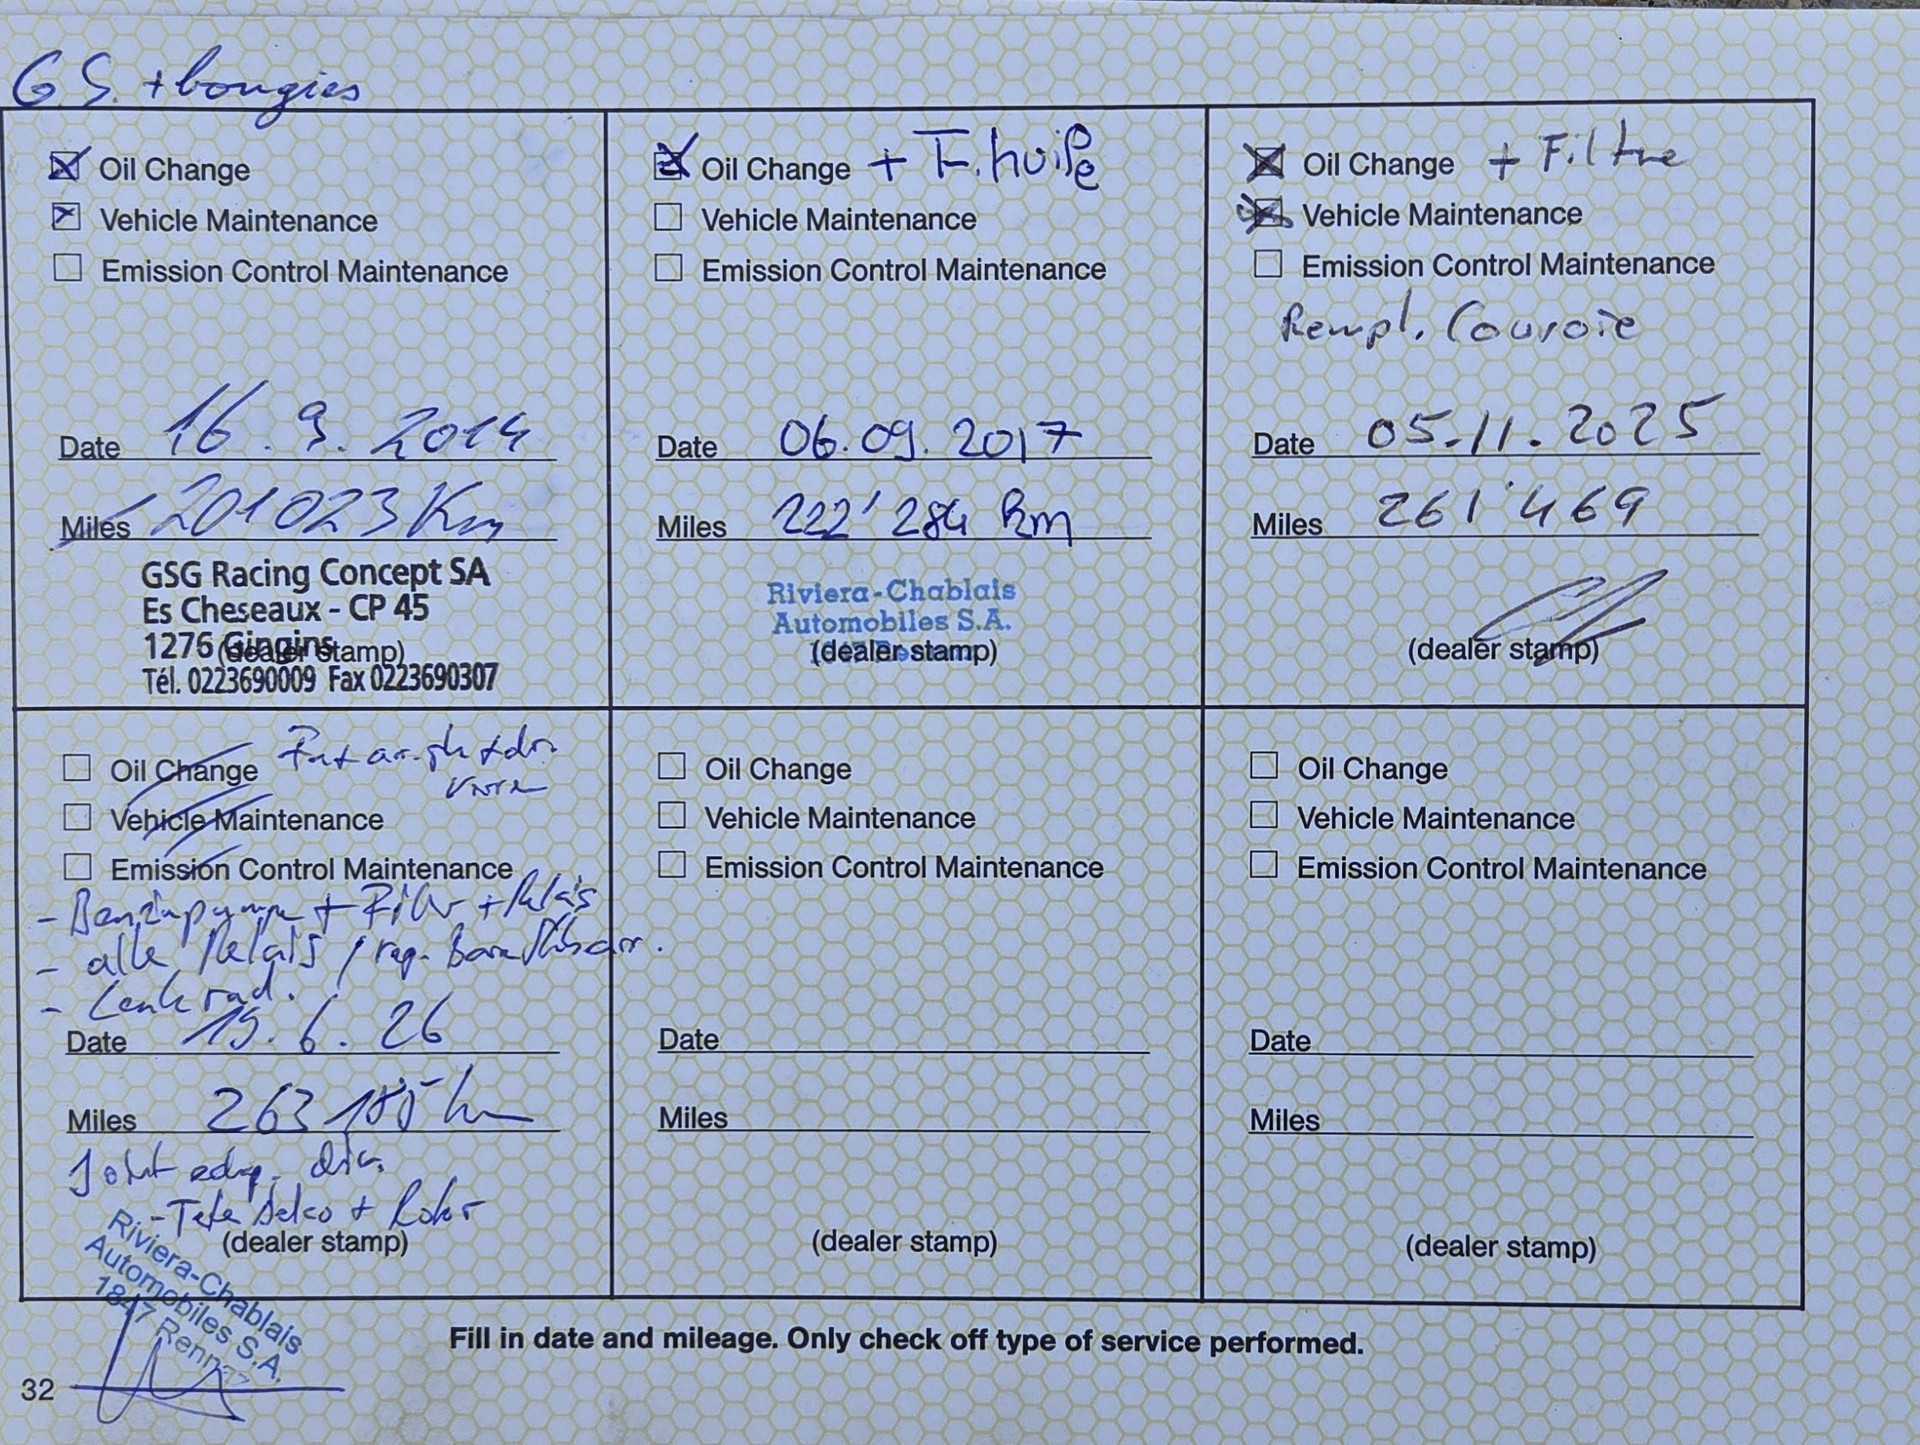 G.S. + bougies
Oil Change
Vehicle Maintenance
Emission Control Maintenance
Date 16.9.2014
Miles 201023 Km
GSG Racing Concept SA
Es Cheseaux - CP 45
1276 Gingins
(dealer stamp)
Tél. 0223690009 Fax 0223690307
Oil Change + F. huile
Vehicle Maintenance
Emission Control Maintenance
Date 06.09.2017
Miles 222'284 km
Riviera-Chablais
Automobiles S.A.
(dealer stamp)
Oil Change + Filtre
Vehicle Maintenance
Emission Control Maintenance
Rempl. Courroie
Date 05.11.2025
Miles 261'469
(dealer stamp)
Oil Change
Vehicle Maintenance
Emission Control Maintenance
- Benzinpumpe + Filter + Relais
- alle Relais / rep.
- Lenkrad.
Date 15.6.26
Miles 263 185 km
Joint
- Tete Delco + Rotor
(dealer stamp)
Riviera-Chablais
Automobiles S.A.
1847 Rennaz
Oil Change
Vehicle Maintenance
Emission Control Maintenance
Date
Miles
(dealer stamp)
Oil Change
Vehicle Maintenance
Emission Control Maintenance
Date
Miles
(dealer stamp)
Fill in date and mileage. Only check off type of service performed.
32